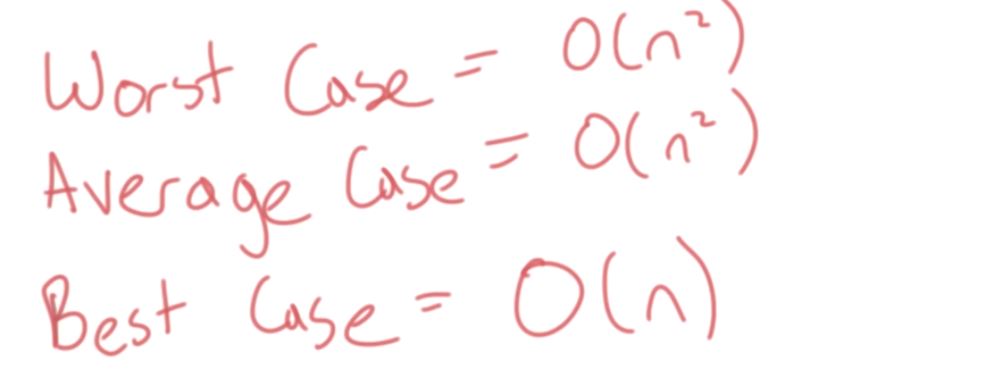 Worst Case = O(n²)
Average Case = O(n²)
Best Case = O(n)